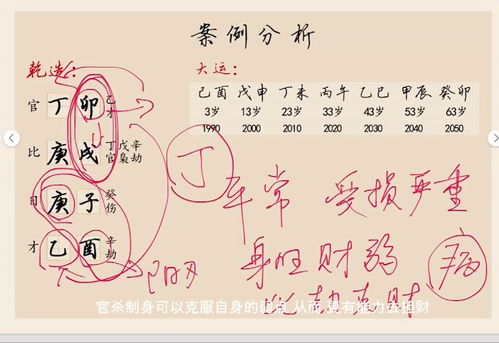 案例分析
乾造：
大运：
官 丁 卯 乙才
比 庚 戌 丁官 戊枭 辛劫
日 庚 子 癸伤
才 乙 酉 辛劫
己酉 戊申 丁未 丙午 乙巳 甲辰 癸卯
3岁 13岁 23岁 33岁 43岁 53岁 63岁
1990 2000 2010 2020 2030 2040 2050
丁
平常 受损严重
身旺财弱
病
官杀制身可以克服自身的弱点 从而 更有能力去担财